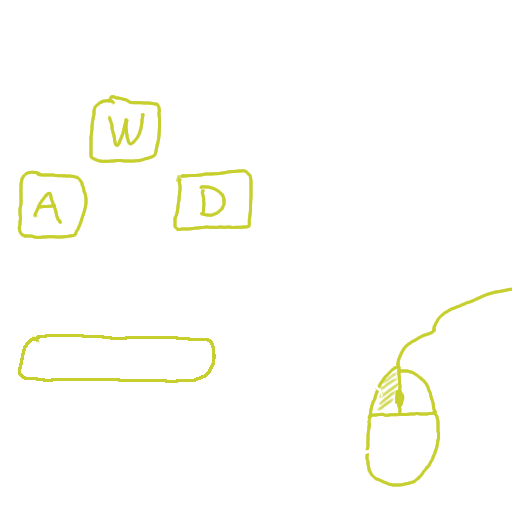 W
A D